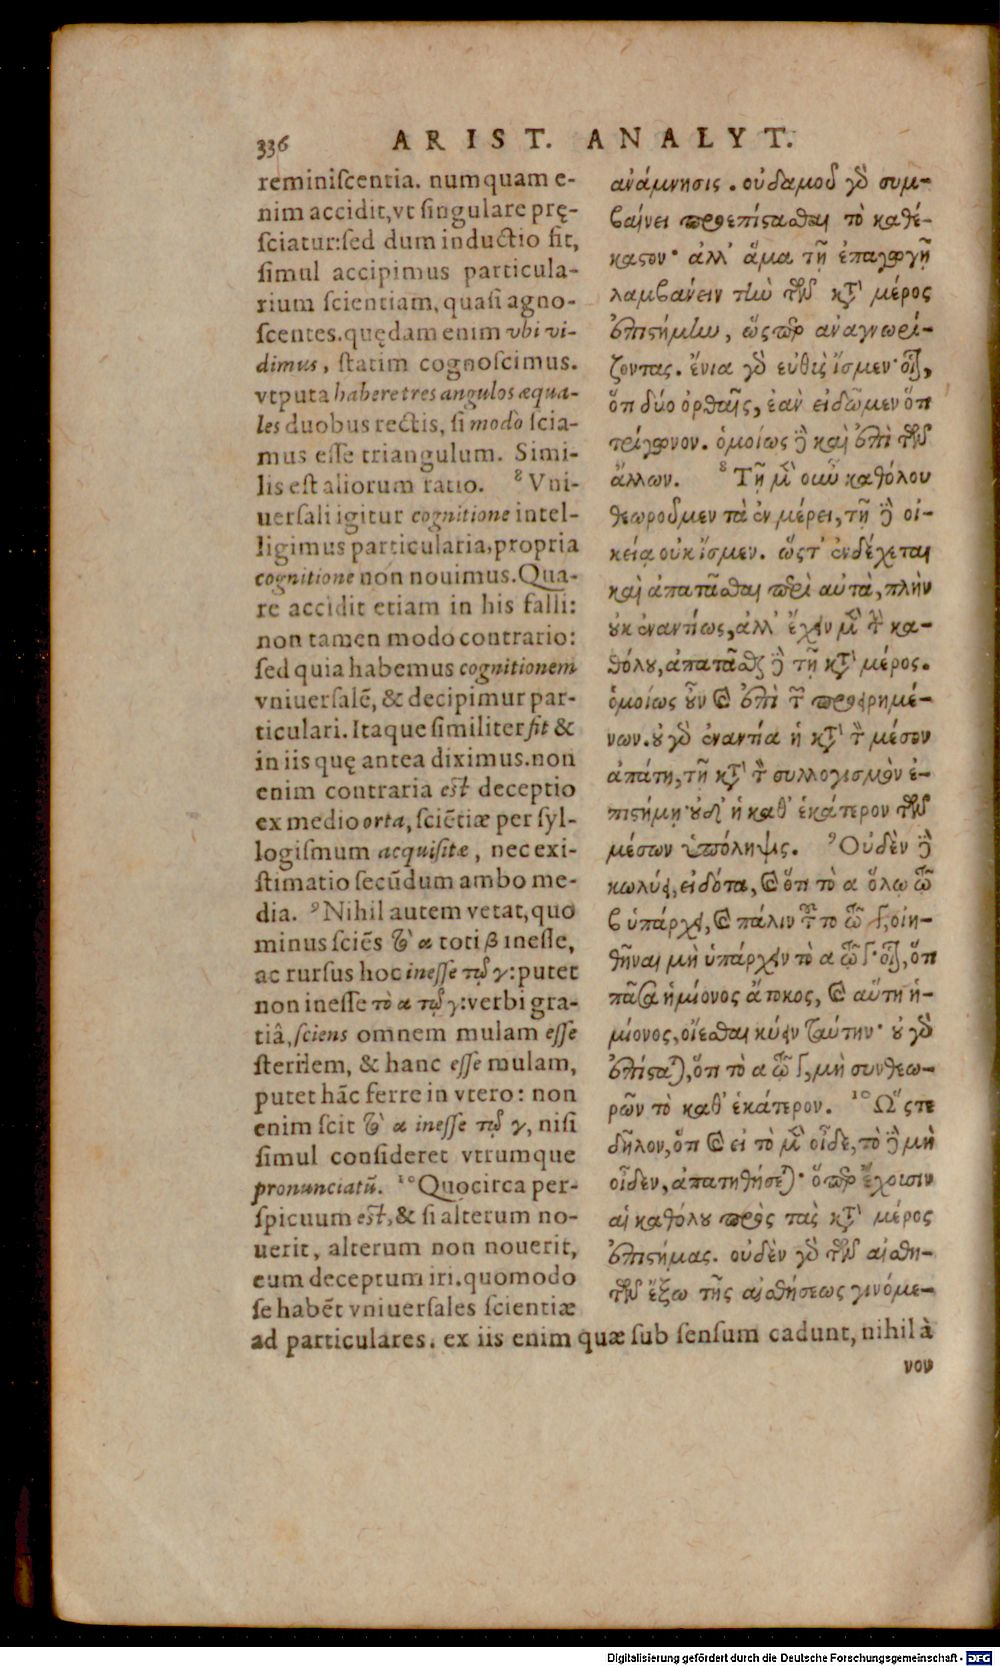 336 ARIST. ANALYT.
reminiſcentia. numquam e-
nim accidit, vt ſingulare prę-
ſciatur: ſed dum inductio fit,
ſimul accipimus particula-
rium ſcientiam, quaſi agno-
ſcentes. quędam enim vbi vi-
dimus, ſtatim cognoſcimus.
vtputa habere tres angulos æqua-
les duobus rectis, ſi modò ſcia-
mus eſſe triangulum. Simi-
lis eſt aliorum ratio. ⁸ Vni-
uerſali igitur cognitione intel-
ligimus particularia, propria
cognitione non nouimus. Qua-
re accidit etiam in his falli:
non tamen modo contrario:
ſed quia habemus cognitionem
vniuerſalẽ, & decipimur par-
ticulari. Itaque ſimiliter fit &
in iis quę antea diximus. non
enim contraria eſt deceptio
ex medio orta, ſciẽtiæ per ſyl-
logiſmum acquiſitæ, nec exi-
ſtimatio ſecũdum ambo me-
dia. ⁹ Nihil autem vetat, quo
minus ſciẽs τὸ α toti β ineſſe,
ac rurſus hoc ineſſe τῷ γ: putet
non ineſſe τὸ α τῷ γ: verbi gra-
tiâ, ſciens omnem mulam eſſe
ſterilem, & hanc eſſe mulam,
putet hãc ferre in vtero: non
enim ſcit τὸ α ineſſe τῷ γ, niſi
ſimul conſideret vtrumque
pronunciatũ. ¹⁰ Quocirca per-
ſpicuum eſt, & ſi alterum no-
uerit, alterum non nouerit,
eum deceptum iri. quomodo
ſe habẽt vniuerſales ſcientiæ
ad particulares. ex iis enim quæ ſub ſenſum cadunt, nihil à
ἀνάμνησις. οὐδαμοῦ γὰρ συμ-
βαίνει προεπίστασθαι τὸ καθέ-
καστον· ἀλλ' ἅμα τῇ ἐπαγωγῇ
λαμβάνειν τὴν τῶν κατὰ μέρος
ἐπιστήμην, ὥσπερ ἀναγνωρί-
ζοντας. ἔνια γὰρ εὐθὺς ἴσμεν· οἷον,
ὅτι δύο ὀρθαῖς, ἐὰν εἰδῶμεν ὅτι
τρίγωνον. ὁμοίως δὲ καὶ ἐπὶ τῶν
ἄλλων. ⁸ Τῇ μὲν οὖν καθόλου
θεωροῦμεν τὰ ἐν μέρει, τῇ δὲ οἰ-
κείᾳ οὐκ ἴσμεν. ὥστ' ἐνδέχεται
καὶ ἀπατᾶσθαι περὶ αὐτὰ, πλὴν
οὐκ ἐναντίως, ἀλλ' ἔχειν μὲν τὴν κα-
θόλου, ἀπατᾶσθαι δὲ τῇ κατὰ μέρος.
ὁμοίως οὖν καὶ ἐπὶ τῶν προειρημέ-
νων. οὐ γὰρ ἐναντία ἡ κατὰ τὸ μέσον
ἀπάτη, τῇ κατὰ τὸν συλλογισμὸν ἐ-
πιστήμῃ· οὐδ' ἡ καθ' ἑκάτερον τῶν
μέσων ὑπόληψις. ⁹ Οὐδὲν δὲ
κωλύει, εἰδότα, καὶ ὅτι τὸ α ὅλῳ τῷ
β ὑπάρχει, καὶ πάλιν τοῦτο τῷ γ, οἰη-
θῆναι μὴ ὑπάρχειν τὸ α τῷ γ· οἷον, ὅτι
πᾶσα ἡμίονος ἄτοκος, καὶ αὕτη ἡ-
μίονος, οἴεσθαι κύειν ταύτην· οὐ γὰρ
ἐπίσταται, ὅτι τὸ α τῷ γ, μὴ συνθεω-
ρῶν τὸ καθ' ἑκάτερον. ¹⁰ Ὥστε
δῆλον, ὅτι καὶ εἰ τὸ μὲν οἶδε, τὸ δὲ μὴ
οἶδεν, ἀπατηθήσεται· ὅπερ ἔχουσιν
αἱ καθόλου πρὸς τὰς κατὰ μέρος
ἐπιστήμας. οὐδὲν γὰρ τῶν αἰσθη-
τῶν ἔξω τῆς αἰσθήσεως γινόμε-
νον
Digitalisierung gefördert durch die Deutsche Forschungsgemeinschaft - DFG